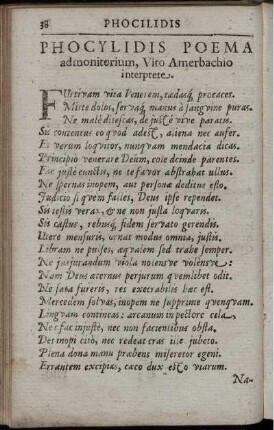 38 PHOCILIDIS
PHOCYLIDIS POEMA
admonitorium, Vito Amerbachio
interprete.
FUrtivam vita Venerem, tædasq́, procaces.
Mitte dolos, servaq́, manus à sanguine puras.
Ne malè ditescas, de justo vive paratis.
Sis contentus eo quod adest, aliena nec aufer.
Et verum loquitor, nunquam mendacia dicas.
Principiò venerare Deum, cole deinde parentes.
Fac justè cunctis, ne te favor abstrahat ullus.
Ne spernas inopem, aut persona deditus esto.
Judicio si quem falles, Deus ipse rependet.
Sis testis verax, & ne non justa loquaris.
Sis castus, rebusq́, fidem servato gerendis.
Utere mensuris, ornat modus omnia, justis.
Libram ne pulses, æqualem sed trade semper.
Ne jusjurandum viola nolensve volensve:
Nam Deus æternus perjurum quemlibet odit.
Ne sata fureris, res execrabilis hæc est.
Mercedem solvas, inopem ne supprime quenquam.
Linguam contineas: arcanum in pectore cela.
Nec fac injustè, nec non facientibus obsta.
Des inopi citò, nec redeat cras ille jubeto.
Plena dona manu præbens miseretor egeni.
Errantem excipias, cæco dux esto viarum.
Na-